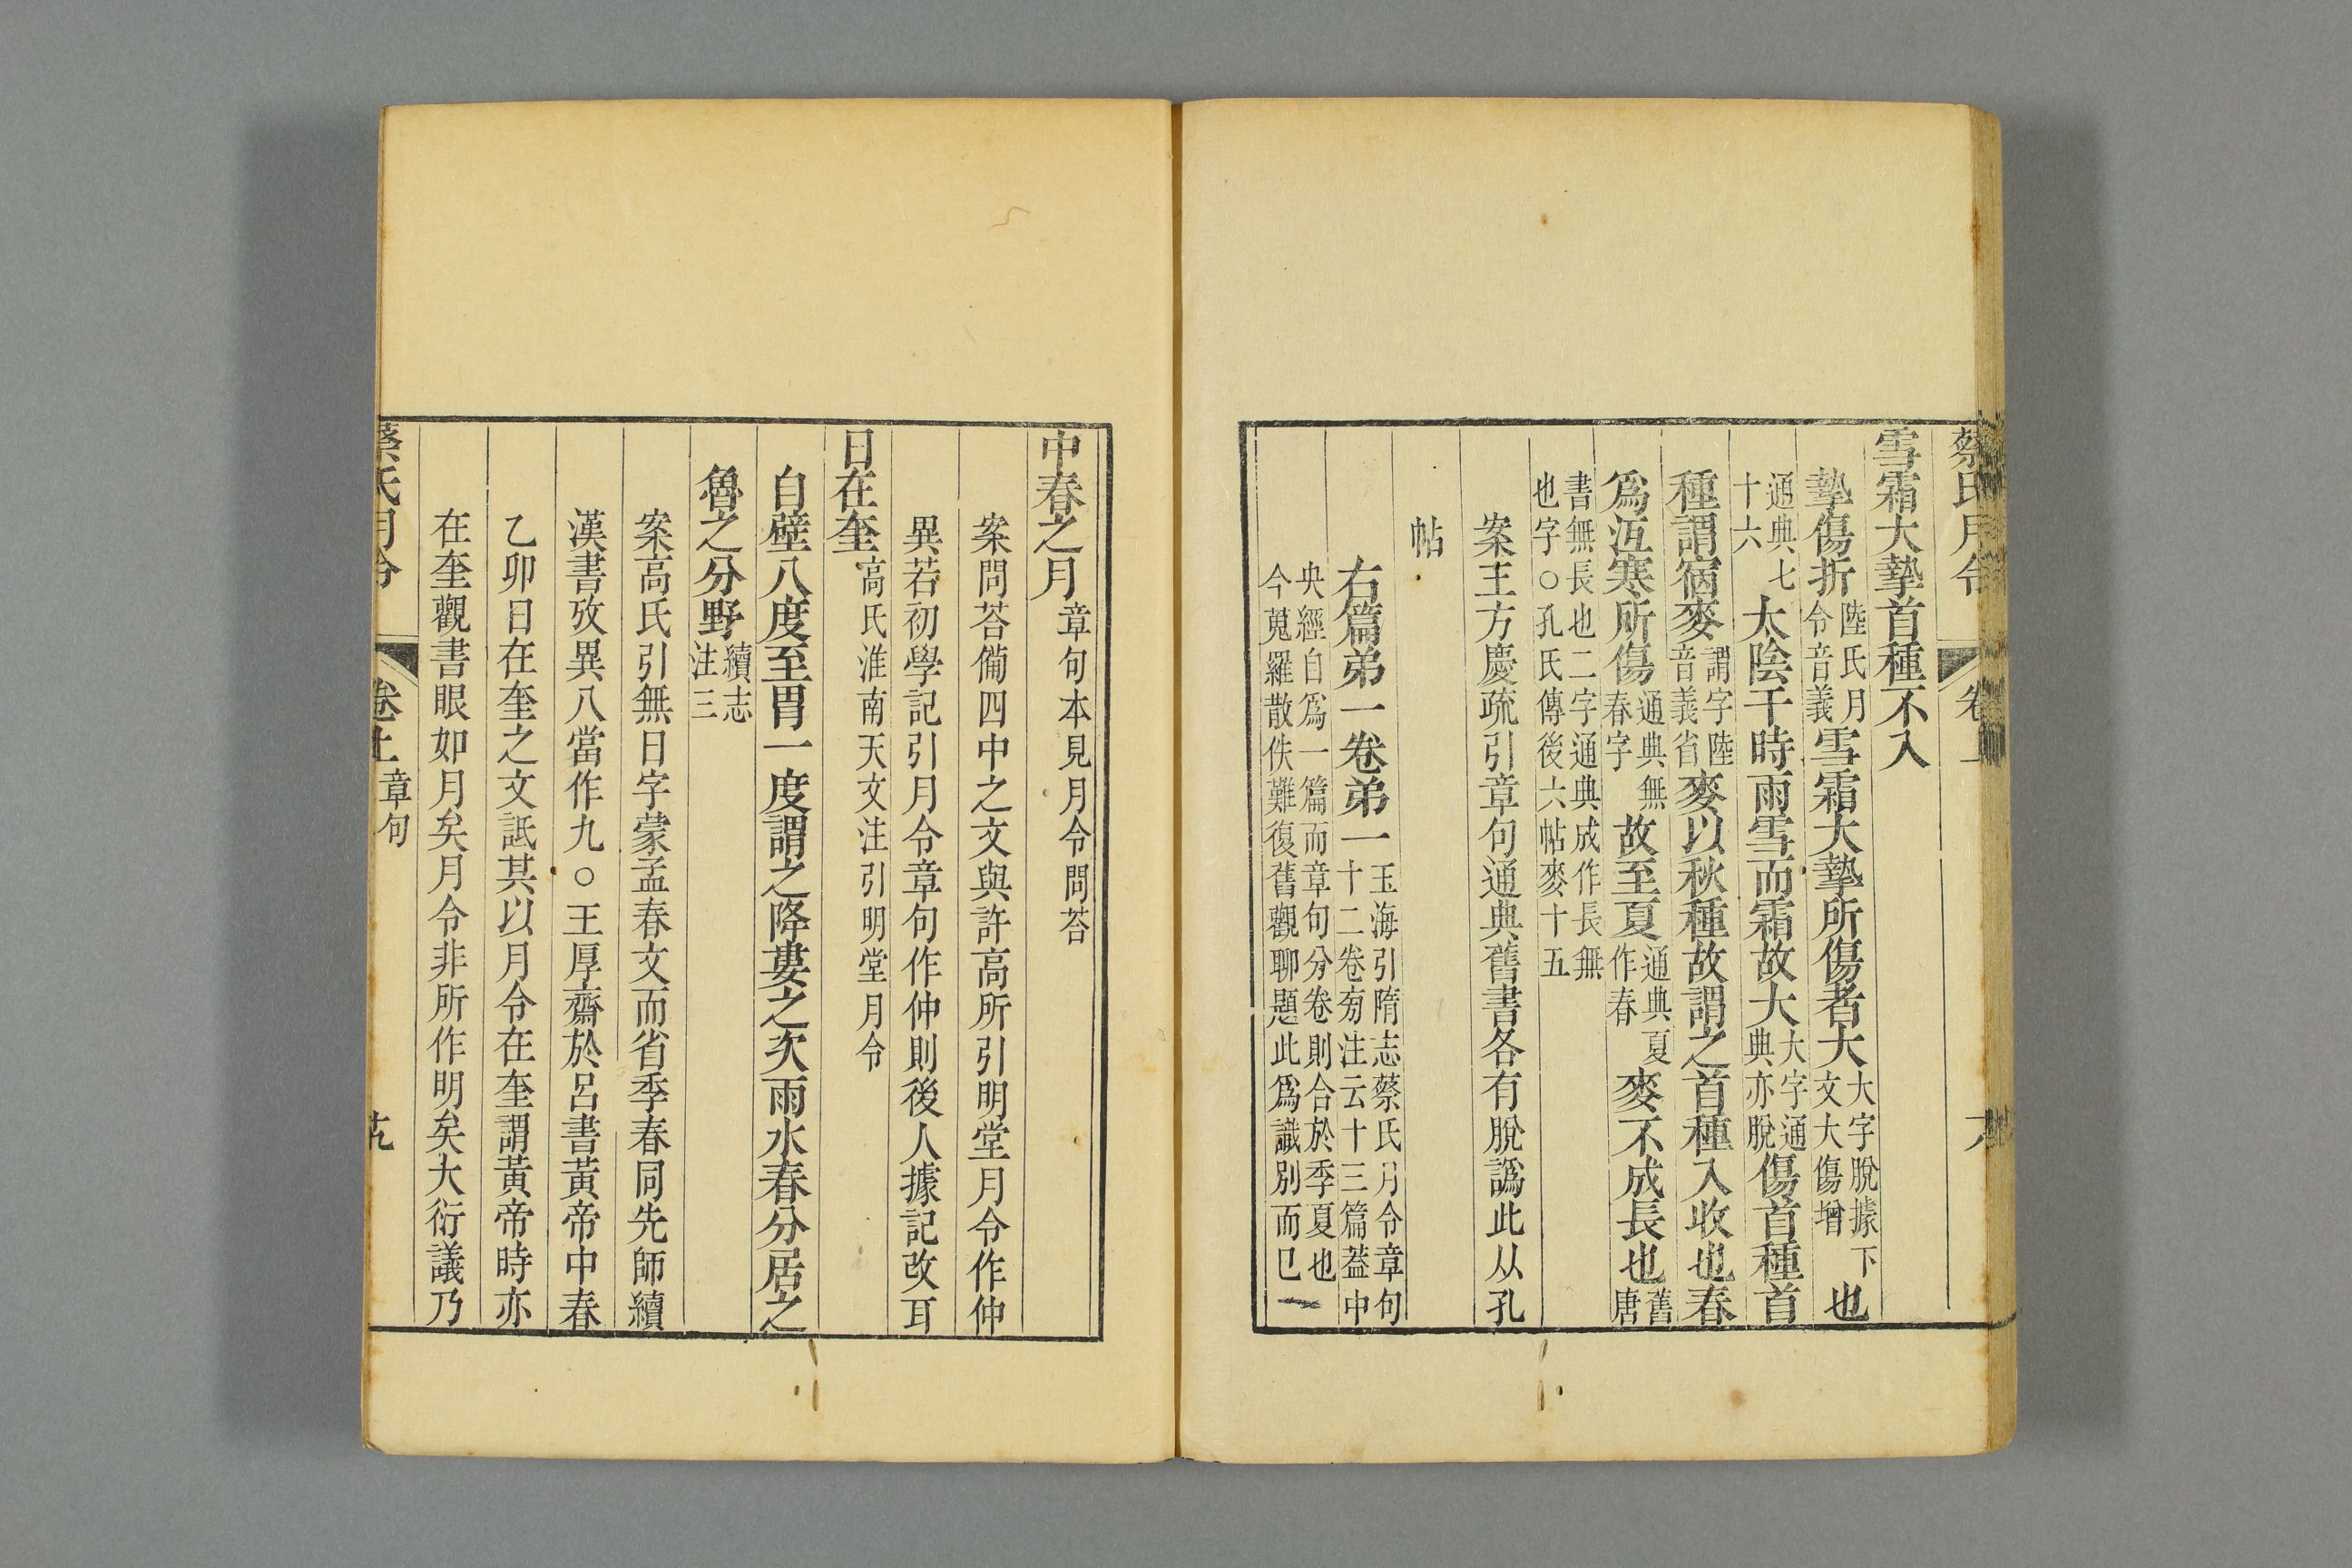 蔡氏月令 卷
雪霜大摯首種不入
摯傷折陸氏月令音義雪霜大摯所傷者大大字脫據下文大傷增也
通典七十六太陰干時雨雪而霜故大大字通典亦脫傷首種首
種謂宿麥謂字陸音義省麥以秋種故謂之首種入收也春
爲沍寒所傷通典無春字故至夏通典夏作春麥不成長也舊唐
書無長也二字通典成作長無也字○孔氏傳後六帖麥十五
案王方慶疏引章句通典舊書各有脫譌此从孔
帖
右篇弟一卷弟一玉海引隋志蔡氏月令章句十二卷㫄注云十三篇葢中
央經自爲一篇而章句分卷則合於季夏也今蒐羅散佚難復舊觀聊題此爲識別而已
中春之月章句本見月令問荅
案問荅備四中之文與許高所引明堂月令作仲
異若初學記引月令章句作仲則後人據記改耳
日在奎高氏淮南天文注引明堂月令
自壁八度至胃一度謂之降婁之次雨水春分居之
魯之分野續志注三
案高氏引無日字蒙孟春文而省季春同先師續
漢書攷異八當作九○王厚齋於呂書黃帝中春
乙卯日在奎之文詆其以月令在奎謂黃帝時亦
在奎觀書眼如月矣月令非所作明矣大衍議乃
蔡氏月令 卷上 章句